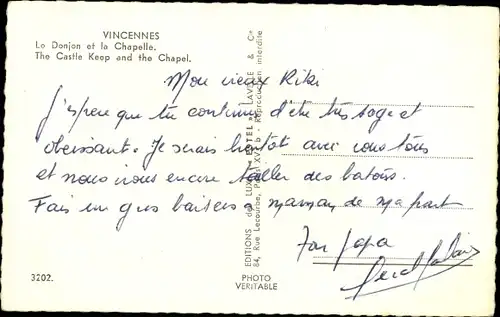 VINCENNES
Le Donjon et la Chapelle.
The Castle Keep and the Chapel.
Mon vieux Kiki
J'espere que tu continus d'être très sage et
obeissant. Je serais bientot avec vous tous
et nous irons encore tailler des batons.
Fais un gros baisers a maman de ma part
Ton Papa
3202.
PHOTO
VERITABLE
84, Rue Lecourbe, Paris XVe - Reproduction interdite